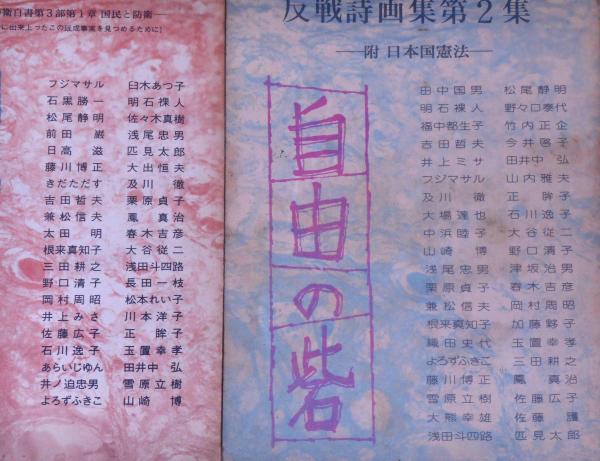 衛白書第3部第1章 国民と防衛——
に出来上ったこの既成事実を見つめるために)
フジマサル 臼木あつ子
石黒勝一 明石裸人
松尾静明 佐々木真樹
前田 巌 浅尾忠男
日高 滋 匹見太郎
藤川博正 大出恒夫
きだただす 及川 徹
吉田哲夫 栗原貞子
兼松信夫 鳳 真治
太田 明 春木吉彦
根来真知子 大谷従二
三田耕之 浅田斗四路
野口清子 長田一枝
岡村周昭 松本れい子
井上みさ 川本洋子
佐藤広子 正 眸子
石川逸子 玉置幸孝
あらいじゅん 田井中 弘
井ノ迫忠男 雪原立樹
よろずふきこ 山崎 博
反戦詩画集第2集
——附 日本国憲法——
自由の砦
田中国男 松尾静明
明石裸人 野々口泰代
福中都生子 竹内正企
吉田哲夫 今井啓子
井上ミサ 田井中 弘
フジマサル 山内雅夫
及川 徹 正 眸子
大場達也 石川逸子
中浜睦子 大谷従二
山崎 博 野口清子
浅尾忠男 津坂治男
栗原貞子 春木吉彦
兼松信夫 岡村周昭
根来真知子 加藤野子
織田史代 玉置幸孝
よろずふきこ 三田耕之
藤川博正 鳳 真治
雪原立樹 佐藤広子
大熊幸雄 佐藤 護
浅田斗四路 匹見太郎